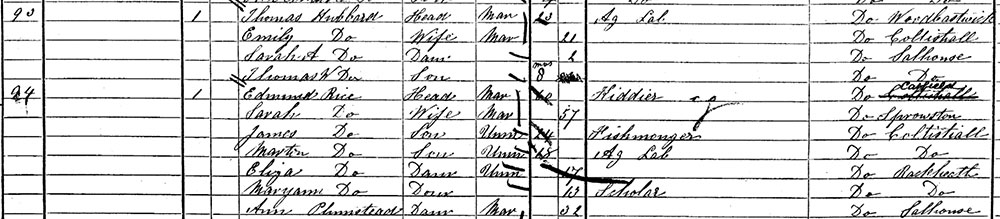 93 1 Thomas Hubbard Head Mar 23 Ag Lab Do Woodbastwick
Emily Do Wife Mar 21 Do Coltishall
Sarah A Do Daur 2 Do Salhouse
Thomas W Do Son 8 mos Do Do
94 1 Edmund Rice Head Mar 60 Kiddier Do Catfield
Sarah Do Wife Mar 57 Do Sprowston
James Do Son Unm 24 Fishmonger Do Coltishall
Martin Do Son Unm 18 Ag Lab Do Do
Eliza Do Daur Unm 17 Do Rackheath
Maryann Do Daur 13 Scholar Do Do
Ann Plumstead Daur Mar 32 Do Salhouse